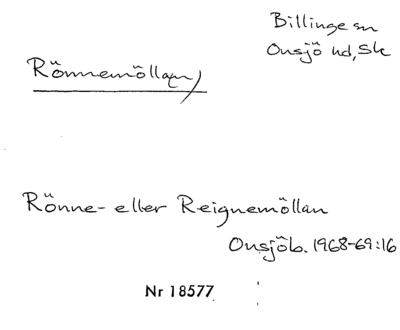 Billinge sn
Onsjö hd, Sk
Rönnemöllan
Rönne- eller Reignemöllan
Onsjöb. 1968-69:16
Nr 18577